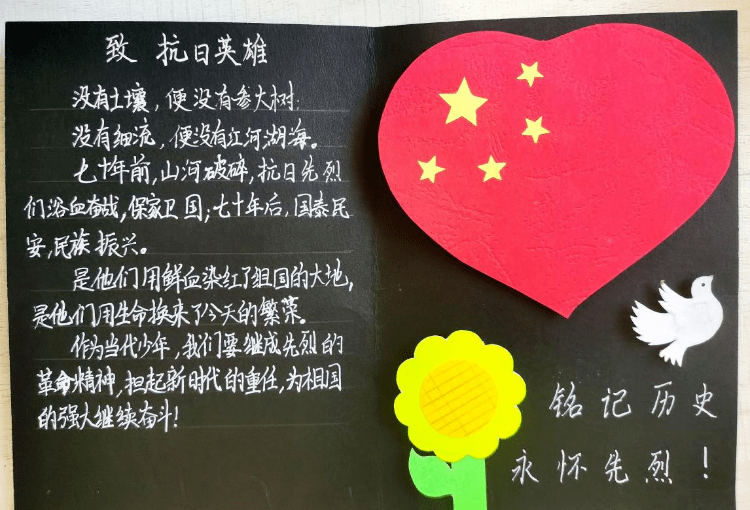 致 抗日英雄
没有土壤，便没有参大树；
没有细流，便没有江河湖海。
七十年前，山河破碎，抗日先烈
们浴血奋战，保家卫国；七十年后，国泰民
安，民族振兴。
是他们用鲜血染红了祖国的大地，
是他们用生命换来了今天的繁荣。
作为当代少年，我们要继成先烈的
革命精神，担起新时代的重任，为祖国
的强大继续奋斗！
铭记历史
永怀先烈！